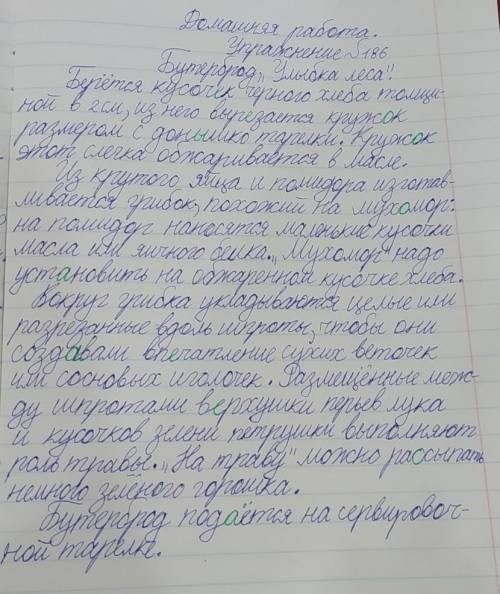 Домашняя работа.
Упражнение №186
Бутерброд „Улыбка леса".
Берётся кусочек чёрного хлеба толщи-
ной в 2см, из него вырезается кружок
размером с донышко тарелки. Кружок
этот слегка обжаривается в масле.
Из крутого яйца и помидора изготав-
ливается грибок, похожий на мухомор:
на помидор наносятся маленькие кусочки
масла или яичного белка. „Мухомор" надо
установить на обжаренный кусочке хлеба.
Вокруг грибка укладываются целые или
разрезанные вдоль шпроты, чтобы они
создавали впечатление сухих веточек
или сосновых иголочек. Размещённые меж-
ду шпротами верхушки перьев лука
и кусочков зелени петрушки выполняют
роль травы. „На траву" можно рассыпать
немного зелёного горошка.
Бутерброд подаётся на сервировоч-
ной тарелке.